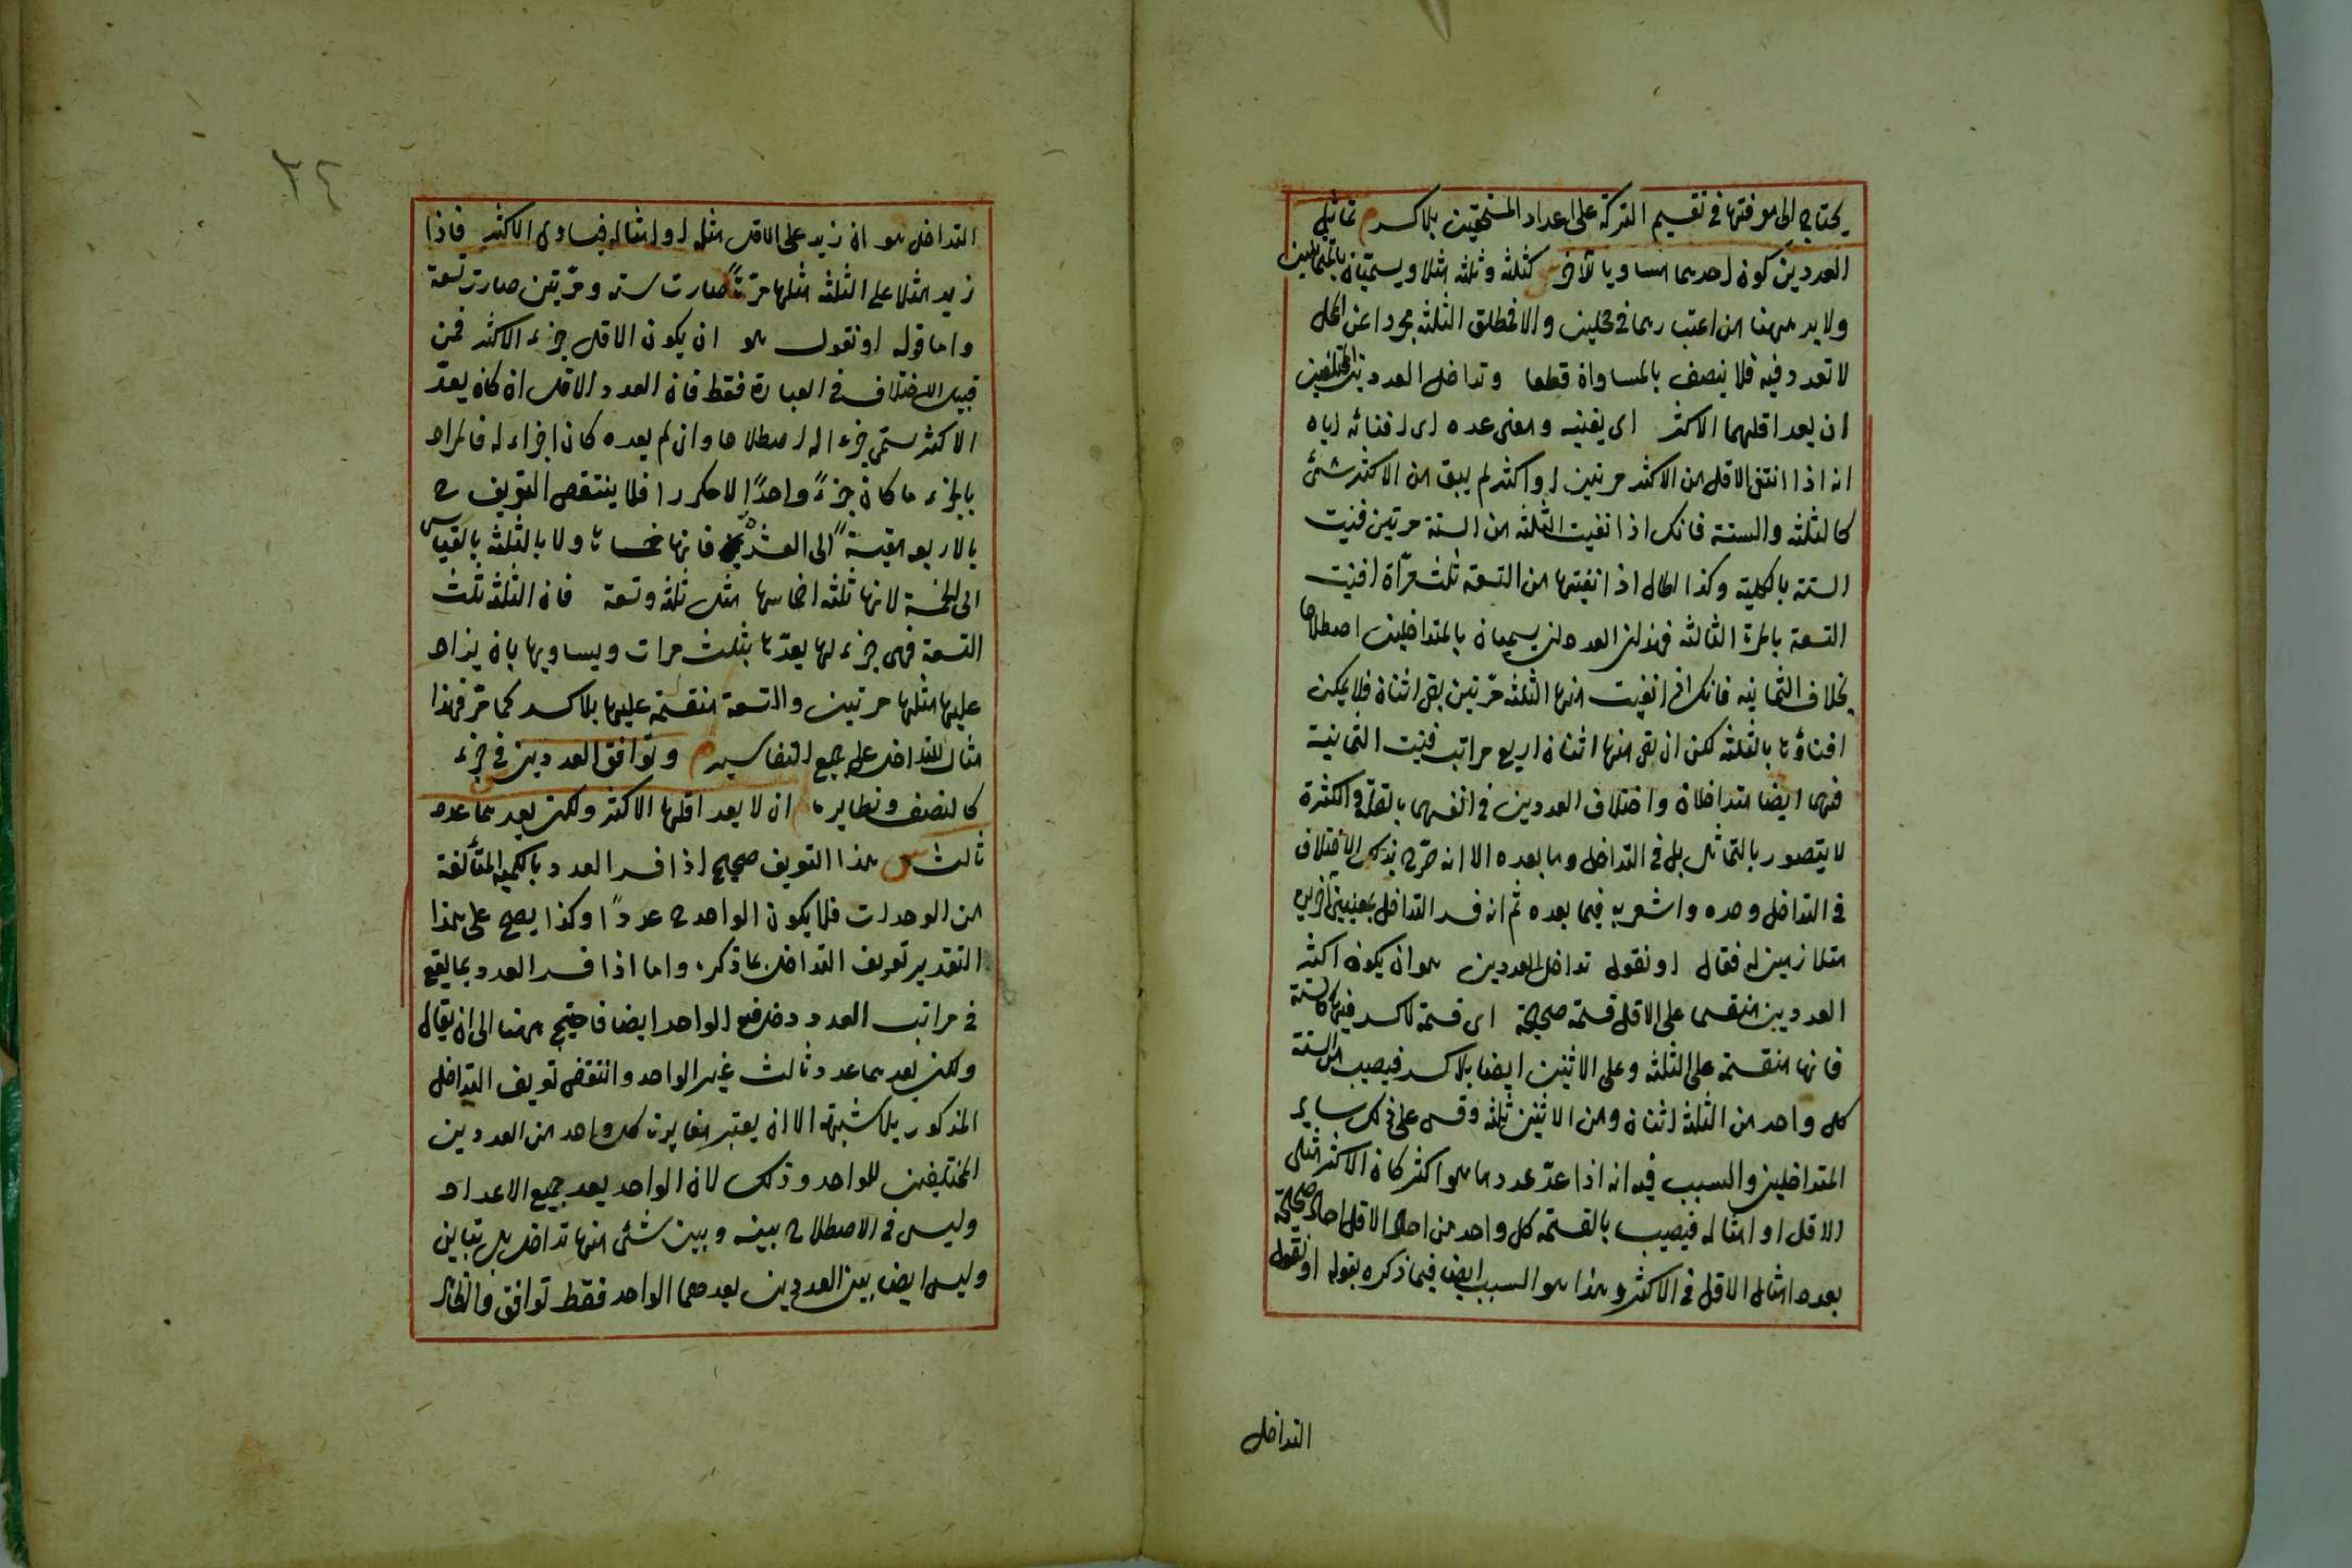 يحتاج الى معرفتها في تقسيم التركة على اعداد المستحقين بلاكسر م تماثل
العددين كون احدهما مساويا للآخر ش كثلثه وثلثه مثلا ويسميان بالمتماثلين
ولا بد ههنا من اعتبارهما في محلين والا فمطلق الثلثه مجردا عن المحل
لا تعدد فيه فلا يتصف بالمساواة قطعا وتداخل العددين المختلفين
ان يعد اقلهما الاكثر اى يفنيه ومعنى عده اى افنائه اياه
انه اذا انتفى الاقل من الاكثر مرتين او اكثر لم يبق من الاكثر شئ
كالثلثه والستة فانك اذا نفيت الثلثه من الستة مرتين فنيت
الستة بالكلية وكذا الحال اذا نفيتها من التسعه ثلث مرات افنيت
التسعة بالمرة الثالثه فهذان العددان يسميان بالمتداخلين اصطلاحا
بخلاف الثمانيه فانك اذا نفيت منها الثلثه مرتين بقى اثنان فلا يمكن
افناؤها بالثلثه لكن ان بقى منها اثنان اربع مراتب فنيت الثمانية
فهما ايضا متداخلان واختلاف العددين في انفسهما بالقلة والكثرة
لا يتصور بالتماثل بل في التداخل وما بعده الا انه صرح بذكر الاختلاف
في التداخل وحده واشعر به فيما بعده ثم انه فسر التداخل بمعنيين آخرين
متلازمين له فقال او نقول تداخل العددين هو ان يكون اكثر
العددين منقسما على الاقل قسمة صحيحة اى قسمة لاكسر فيها كالستة
فانها منقسمة على الثلثه وعلى الاثنين ايضا بلاكسر فيصيب من الستة
كل واحد من الثلثة اثنان ومن الاثنين ثلثه وقس على ذلك ساير
المتداخلين والسبب فيه انه اذا عدّ عدد ما هو اكثر كان الاكثر مثلى
الاقل او امثاله فيصيب بالقسمة كل واحد من احاد الاقل احاد صحيحة
بعدد امثال الاقل في الاكثر وهذا هو السبب ايضا فيما ذكره بقوله او نقول
التداخل
٣٤
التداخل هو ان زيد على الاقل مثله او امثاله فيساوى الاكثر فاذا
زيد مثلا على الثلثه مثلها مرّةً صارت ستة ومرّتين صارت تسعة
واما قوله او نقول هو ان يكون الاقل جزء الاكثر فمن
قبيل الاختلاف في العبارة فقط فان العدد الاقل ان كان يعدّ
الاكثر سمّى جزء اله اصطلاحا وان لم يعده كان اجزاء له فالمراد
بالجزء ما كان جزءً واحدًا لا مكررا فلا ينتقض التعريف ح
بالاربعه مقيسةً الى العشرين فانها خمسان ولا بالثلثه بالقياس
الى الخمسة لانها ثلثه اخماسها مثل ثلثه وتسعة فان الثلثه ثلث
التسعة فهى جزء لها يعدّها بثلث مرات ويساويها بان يزاد
عليها مثلها مرتين والتسعة منقسمة عليها بلاكسر كما مرّ فهذا
مثال للتداخل على جميع التفاسير م وتوافق العددين في جزء
كالنصف ونظايره ان لا يعد اقلهما الاكثر ولكن يعدهما عدد
ثالث ش هذا التعريف صحيح اذا فسر العدد بالكمية المتألفة
من الوحدات فلا يكون الواحد ح عددًا وكذا يصح على هذا
التقدير تعريف التداخل بما ذكره واما اذا فسر العدد بما يقع
في مراتب العدد دخل فيه الواحد ايضا فاحتيج ههنا الى ان يقال
ولكن يعدهما عدد ثالث غير الواحد وانتقض تعريف التداخل
المذكور بلا شبهة الا ان يعتبر مغايرة كل واحد من العددين
المختلفين للواحد وذلك لان الواحد يعد جميع الاعداد
وليس في الاصطلاح بينه وبين شئ منها تداخل بل تباين
وليس ايضا بين العددين يعدهما الواحد فقط توافق